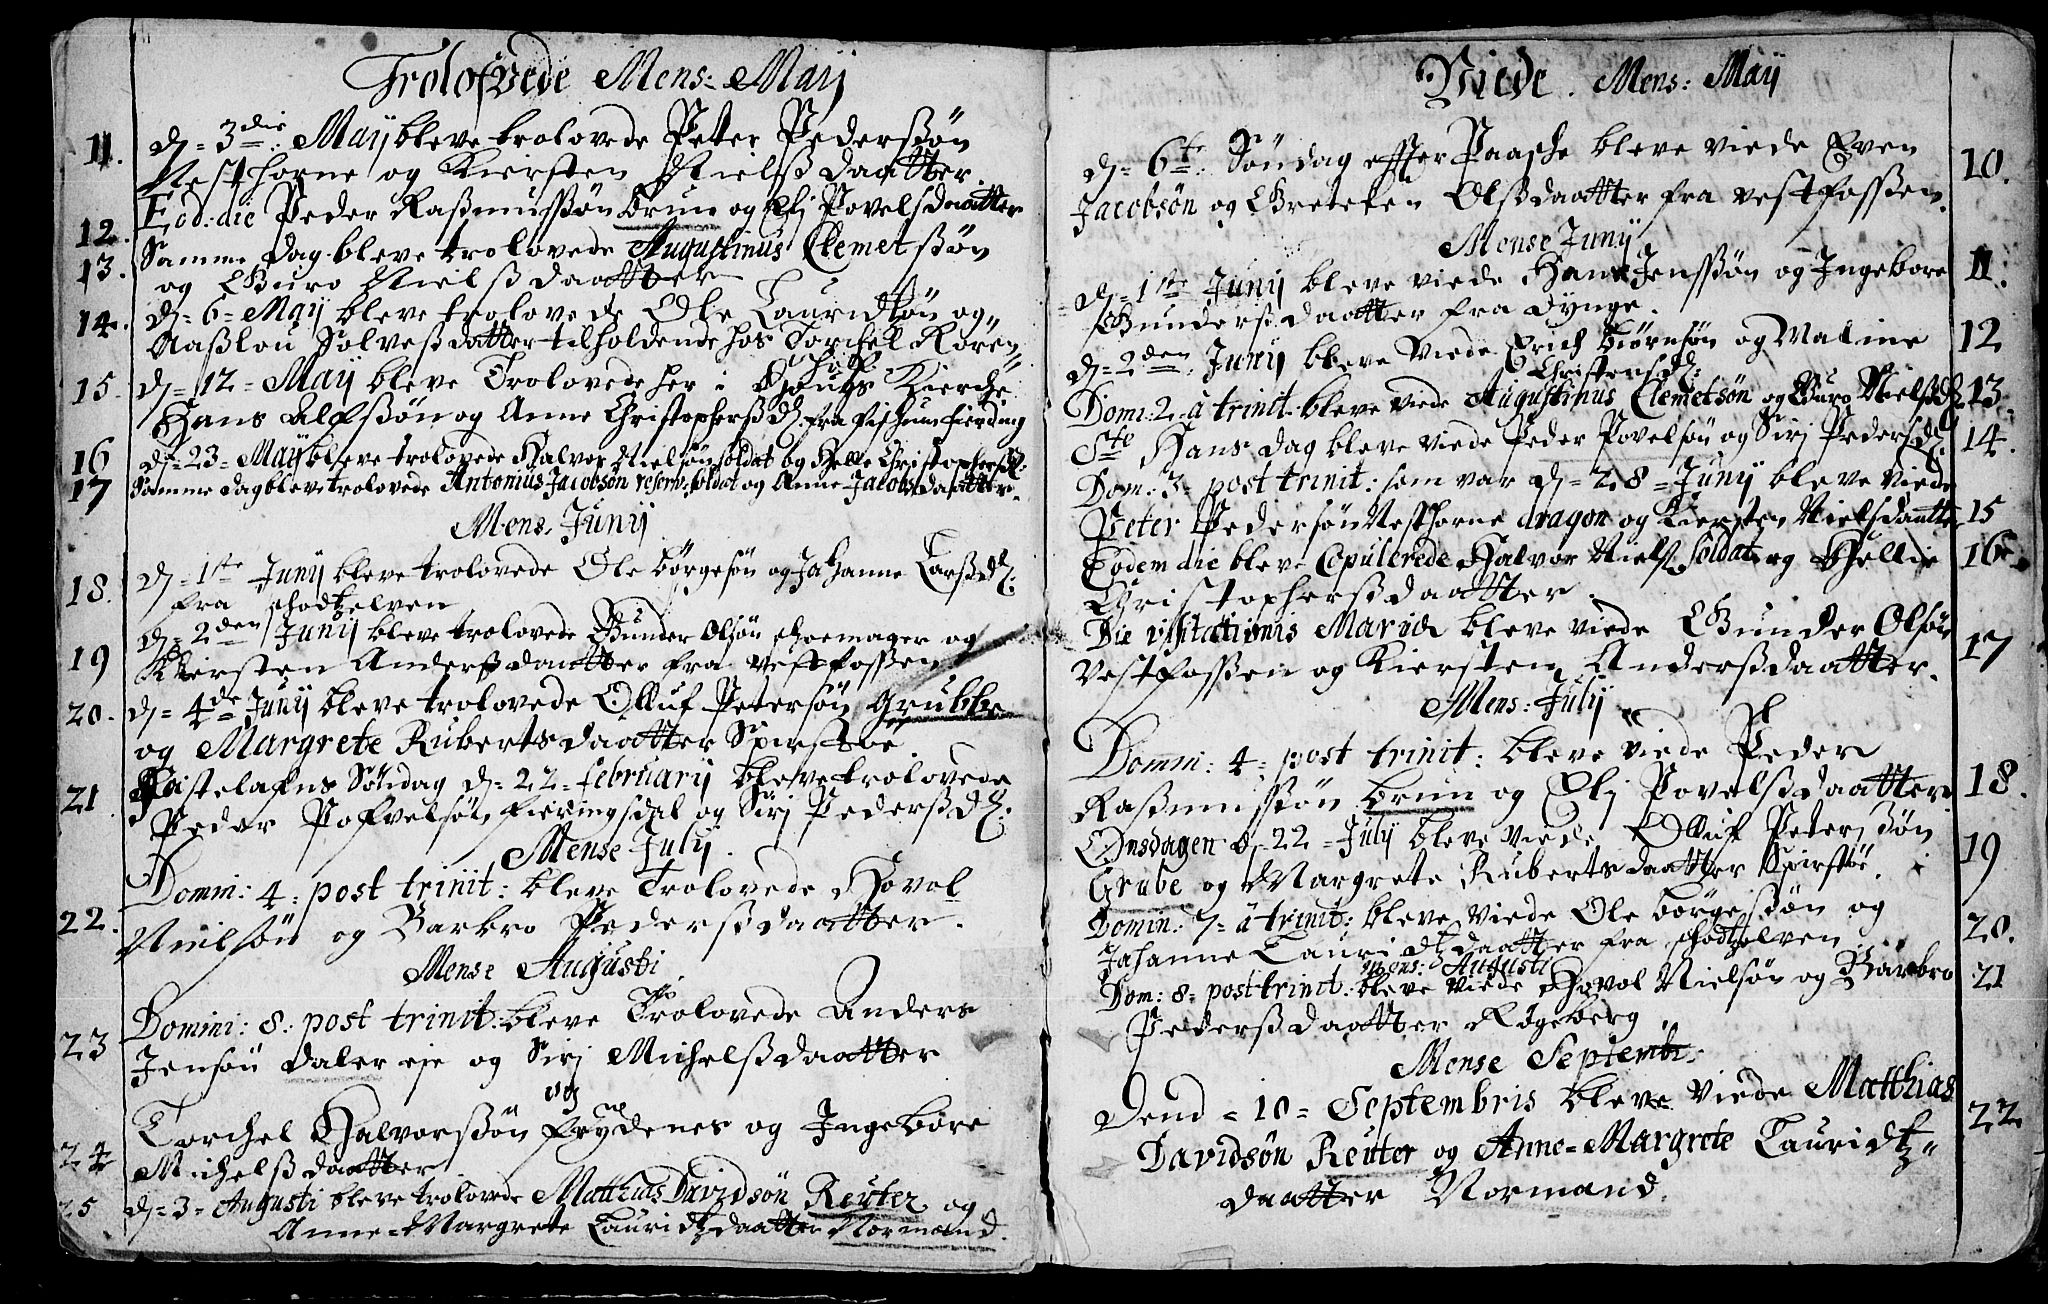 Trolofvede Mens: Maij
11. d= 3die: Maij bleve trolovede Peter Pederssøn
Vesthorne og Kiersten Nielssdaatter.
12. Eod: die Peder Rassmussøn Brun og Elj Povelsdaatter
13. Samme dag bleve trolovede Augustinus Clemetssøn
og Guro Nielssdaatter
14. d= 6= Maij bleve trolovede Ole Lauridtsøn og
Aasslou Sølvessdatter tilholdende hos Torchell
15. d= 12= Maij bleve Trolovede her i Kierche
Hans Alfssøn og Anne Christopherssd. fra fischum fierding
16 d= 23= Maij bleve trolovede Halvor Nielsøn soldat og Helle Christophersd:
17 Samme dag bleve trolovede Antonius Jacobsøn reserv. soldat og Anne Jacobsdaatter.
Mens. Junij
18. d= 1ste Junij bleve trolovede Ole Børgesøn og Johanne Larssd:
fra schodtzelven
19 d= 2den Junij bleve trolovede Gunder Olsøn schoemager og
Kiersten Anderssdaatter fra Vestfossen
20. d= 4de Junij bleve trolovede Olluf Petersøn Grubbe
og Margrete Rubertsdaatter Spirstøe.
21 Fastelafns Søndag d= 22= februarij bleve trolovede
Peder Pofvelsøn fieringsdal og Sirj Pederssd:
Mense Julij.
22. Domini: 4= post trinit: bleve Trolovede Hovol
Nielsøn og Barbro Pederssdaatter.
Mense Augusti
23 Domini: 8. post trinit: bleve Trolovede Anders
Jensøn daler eje og Sirj Michelssdaatter
og
24 Torchel Halvorssøn Frydenes og Ingebore
Michelssdaatter
25 d= 3= Augusti bleve trolovede Matthias Davidsøn Reuter og
Anne=Margrete Lauridtzdaatter Normand.
Viede. Mens: Maij
d= 6te: Søndag effter Paasche bleve viede Even 10.
Jacobsøn og Greteken Olssdaatter fra vestfossen.
Mense Junij
d= 1ste Junij bleve viede Hans Jenssøn og Ingebore 11.
Gunderssdaatter fra Dynge.
d= 2den. Junij bleve Viede Erich Biørnsøn og Maline 12
Christensd:
Domi: 2. à trinit: bleve viede Augustinus Clemetsøn og Guro Nielssd. 13.
Ste Hans dag bleve viede Peder Povelsøn og Sirj Pedersd. 14.
Dom: 3= post trinit: som var d= 28= Junij bleve viede
Peter Pedersøn Vesthorne dragon og Kiersten Nielsdaatter 15
Eodem die bleve Copulerede Halvor Niels. Soldat og Hellie 16.
Christopherssdaatter.
Die visitationis Mariæ bleve viede Gunder Olsøn
Vestfossen og Kiersten Anderssdaatter. 17
Mens: Julij
Domni: 4= post trinit: bleve viede Peder
Rassmussøn Brun og Elj Povelssdaatter. 18.
Onsdagen d= 22= Julij bleve viede Olluf Peterssøn 19
Grube og Margrete Rubertsdaatter Spirstøe.
Domin: 7= à trinit: bleve viede Ole Børgessøn og 20.
Johanne Lauridtzdaatter fra schodtzelven
Mens: Augusti
Dom: 8= post trinit: bleve viede Hovol Nielsøn og Barbro 21
Pederssdaatter Røgeberg
Mense Septembr.
Dend = 10= Septembris bleve viede Matthias 22
Davidsøn Reuter og Anne=Margrete Lauridtz=
daatter Normand.